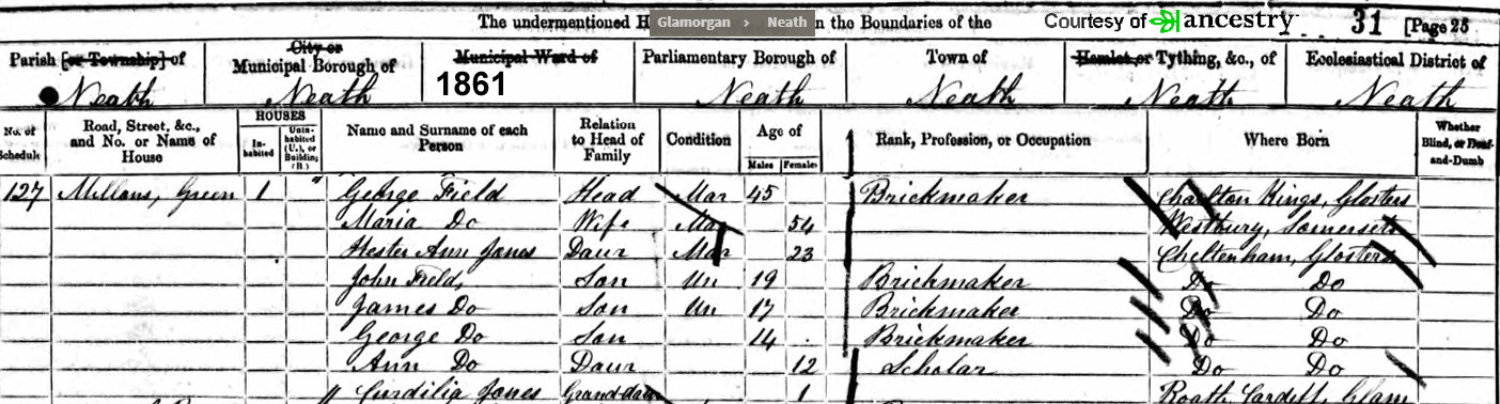 The undermentioned H Glamorgan › Neath n the Boundaries of the Courtesy of ancestry 31 [Page 25
Parish [or Township] of City or Municipal Borough of Municipal Ward of Parliamentary Borough of Town of Hamlet or Tything, &c., of Ecclesiastical District of
Neath Neath 1861 Neath Neath Neath Neath
No. of Schedule Road, Street, &c., and No. or Name of House HOUSES In-habited Unin-habited (U.), or Building (B.) Name and Surname of each Person Relation to Head of Family Condition Age of Males Females Rank, Profession, or Occupation Where Born Whether Blind, or Deaf-and-Dumb
127 Mellons, Green 1 George Field Head Mar 45 Brickmaker Charlton Kings, Glosters
Maria Do Wife Mar 54 Westbury, Somersets
Hester Ann Jones Daur Mar 23 Cheltenham, Glosters
John Field, Son Un 19 Brickmaker Do Do
James Do Son Un 17 Brickmaker Do Do
George Do Son 14 Brickmaker Do Do
Ann Do Daur 12 Scholar Do Do
Curdilia Jones Grand-daur 1 Roath Cardiff, Glam